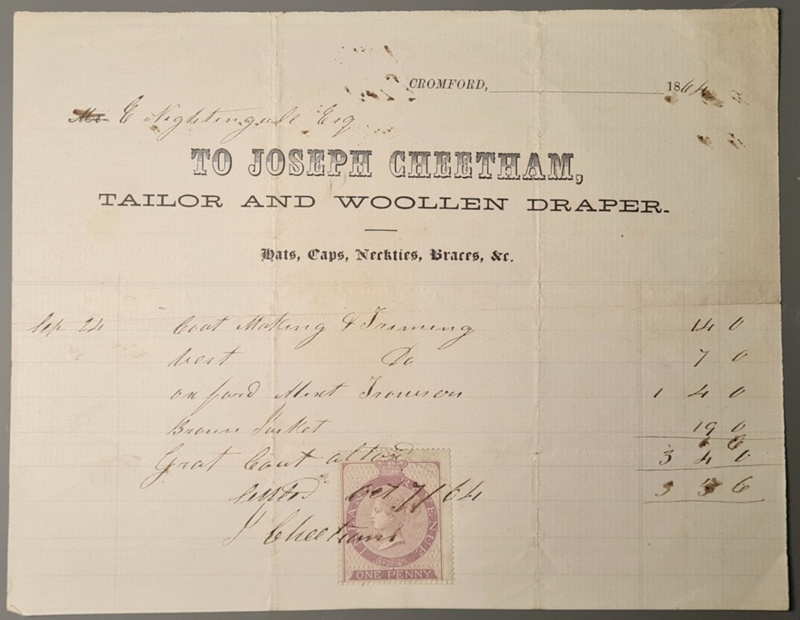 CROMFORD, 1864
Mr E Nightingale Esq
TO JOSEPH CHEETHAM,
TAILOR AND WOOLLEN DRAPER.
Hats, Caps, Neckties, Braces, &c.
Sep 24 Coat Making & Triming 14 0
Vest Do 7 0
oxford Mixt Trowsers 1 4 0
Brown Jacket 19 0
Grat Coat altrd 1 6
3 4 0
Settd Oct 7/64 3 5 6
J Cheetham
INLAND REVENUE
ONE PENNY